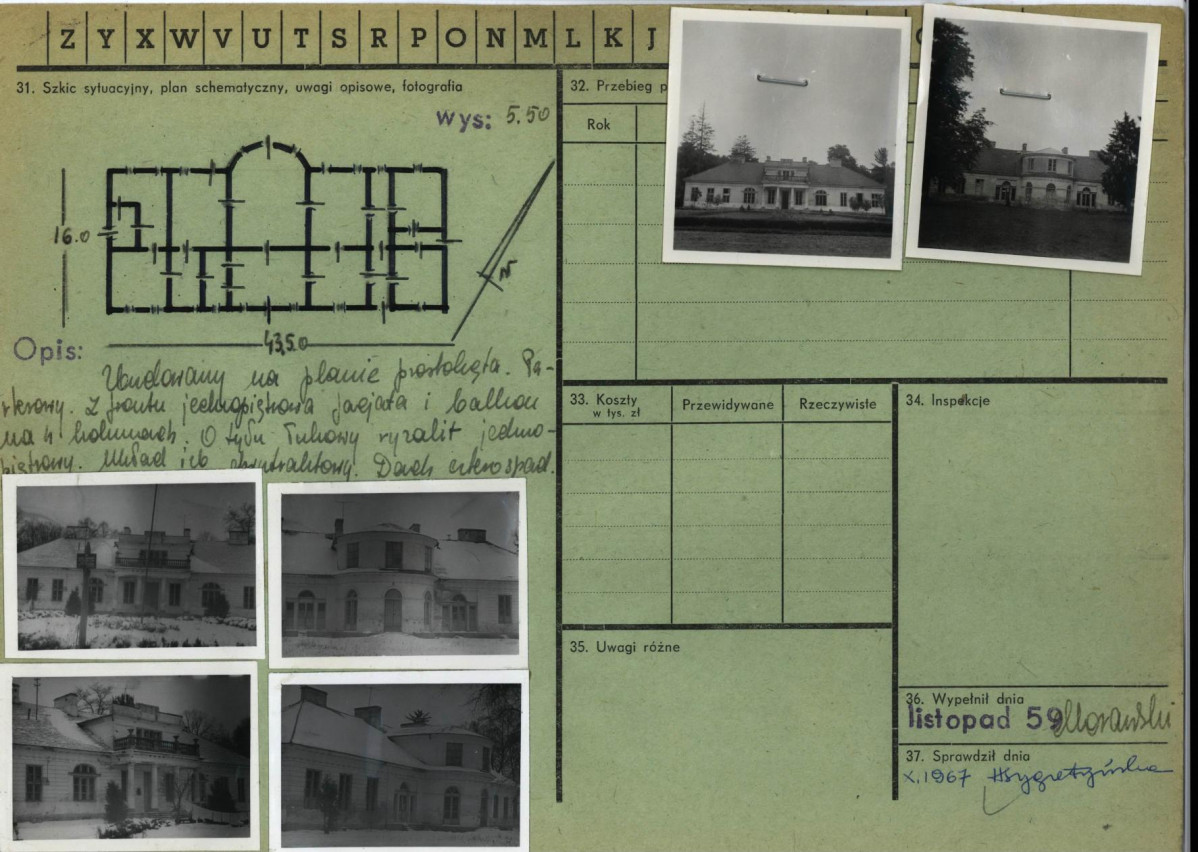 Z Y X W V U T S R P O N M L K J
31. Szkic sytuacyjny, plan schematyczny, uwagi opisowe, fotografia
wys: 5.50
16.0
N
43,5.0
Opis:
na planie prostokąta. Pa-
rterowy. Z frontu jednopiętrowa facjata i balkon
na 4 kolumnach. O tyłu łukowy ryzalit jedno-
piętrowy. Układ ich dwutraktowy. Dach czterospad.
32. Przebieg
Rok
33. Koszty
w tys. zł
Przewidywane
Rzeczywiste
34. Inspekcje
35. Uwagi różne
36. Wypełnił dnia
listopad 59
37. Sprawdził dnia
X.1967